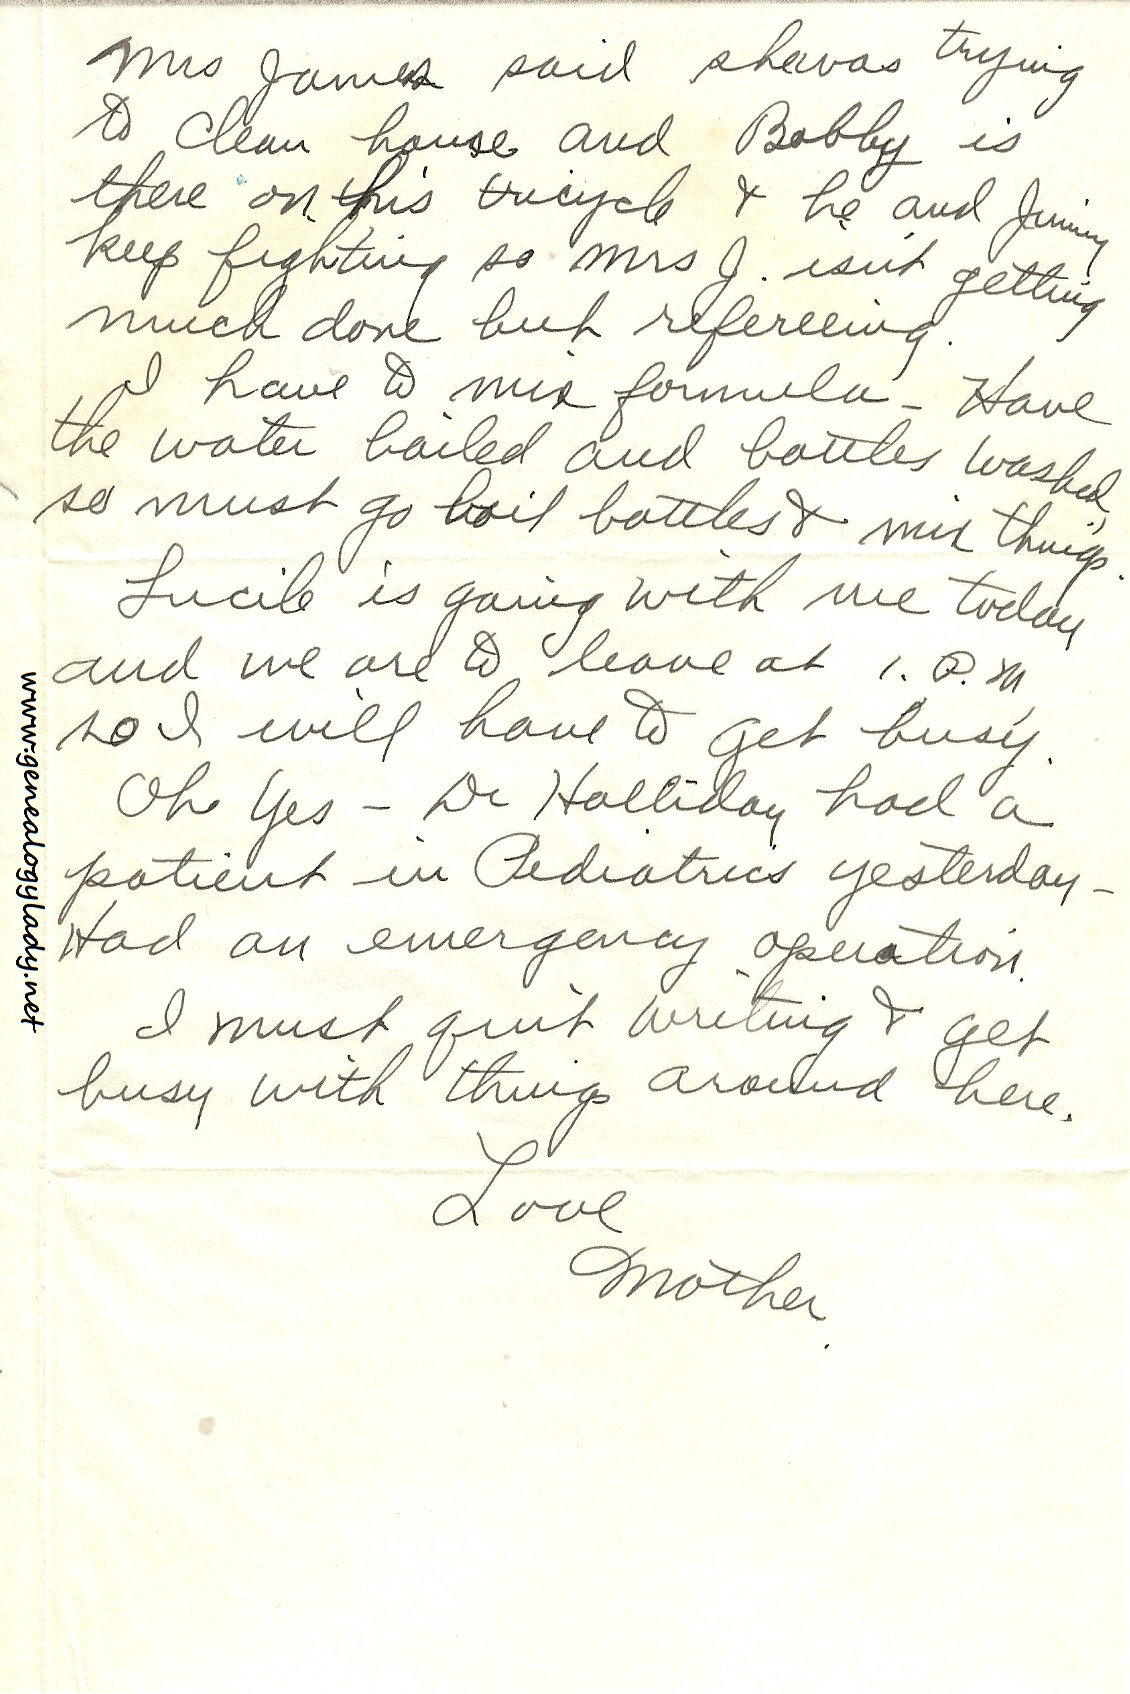 Mrs James said shewas trying
to clean house and Bobby is
there on his tricycle & he and Jimmy
keep fighting so Mrs J. isn't getting
much done but refereeing.
I have to mix formula - Have
the water boiled and bottles washed,
so must go boil bottles & mix things.
Lucile is going with me today
and we are to leave at 1. P.M
so I will have to get busy.
Oh Yes - Dr Halliday had a
patient in Pediatrics yesterday -
Had an emergency operation.
I must quit writing & get
busy with things around here.
Love
Mother.
www.genealogylady.net